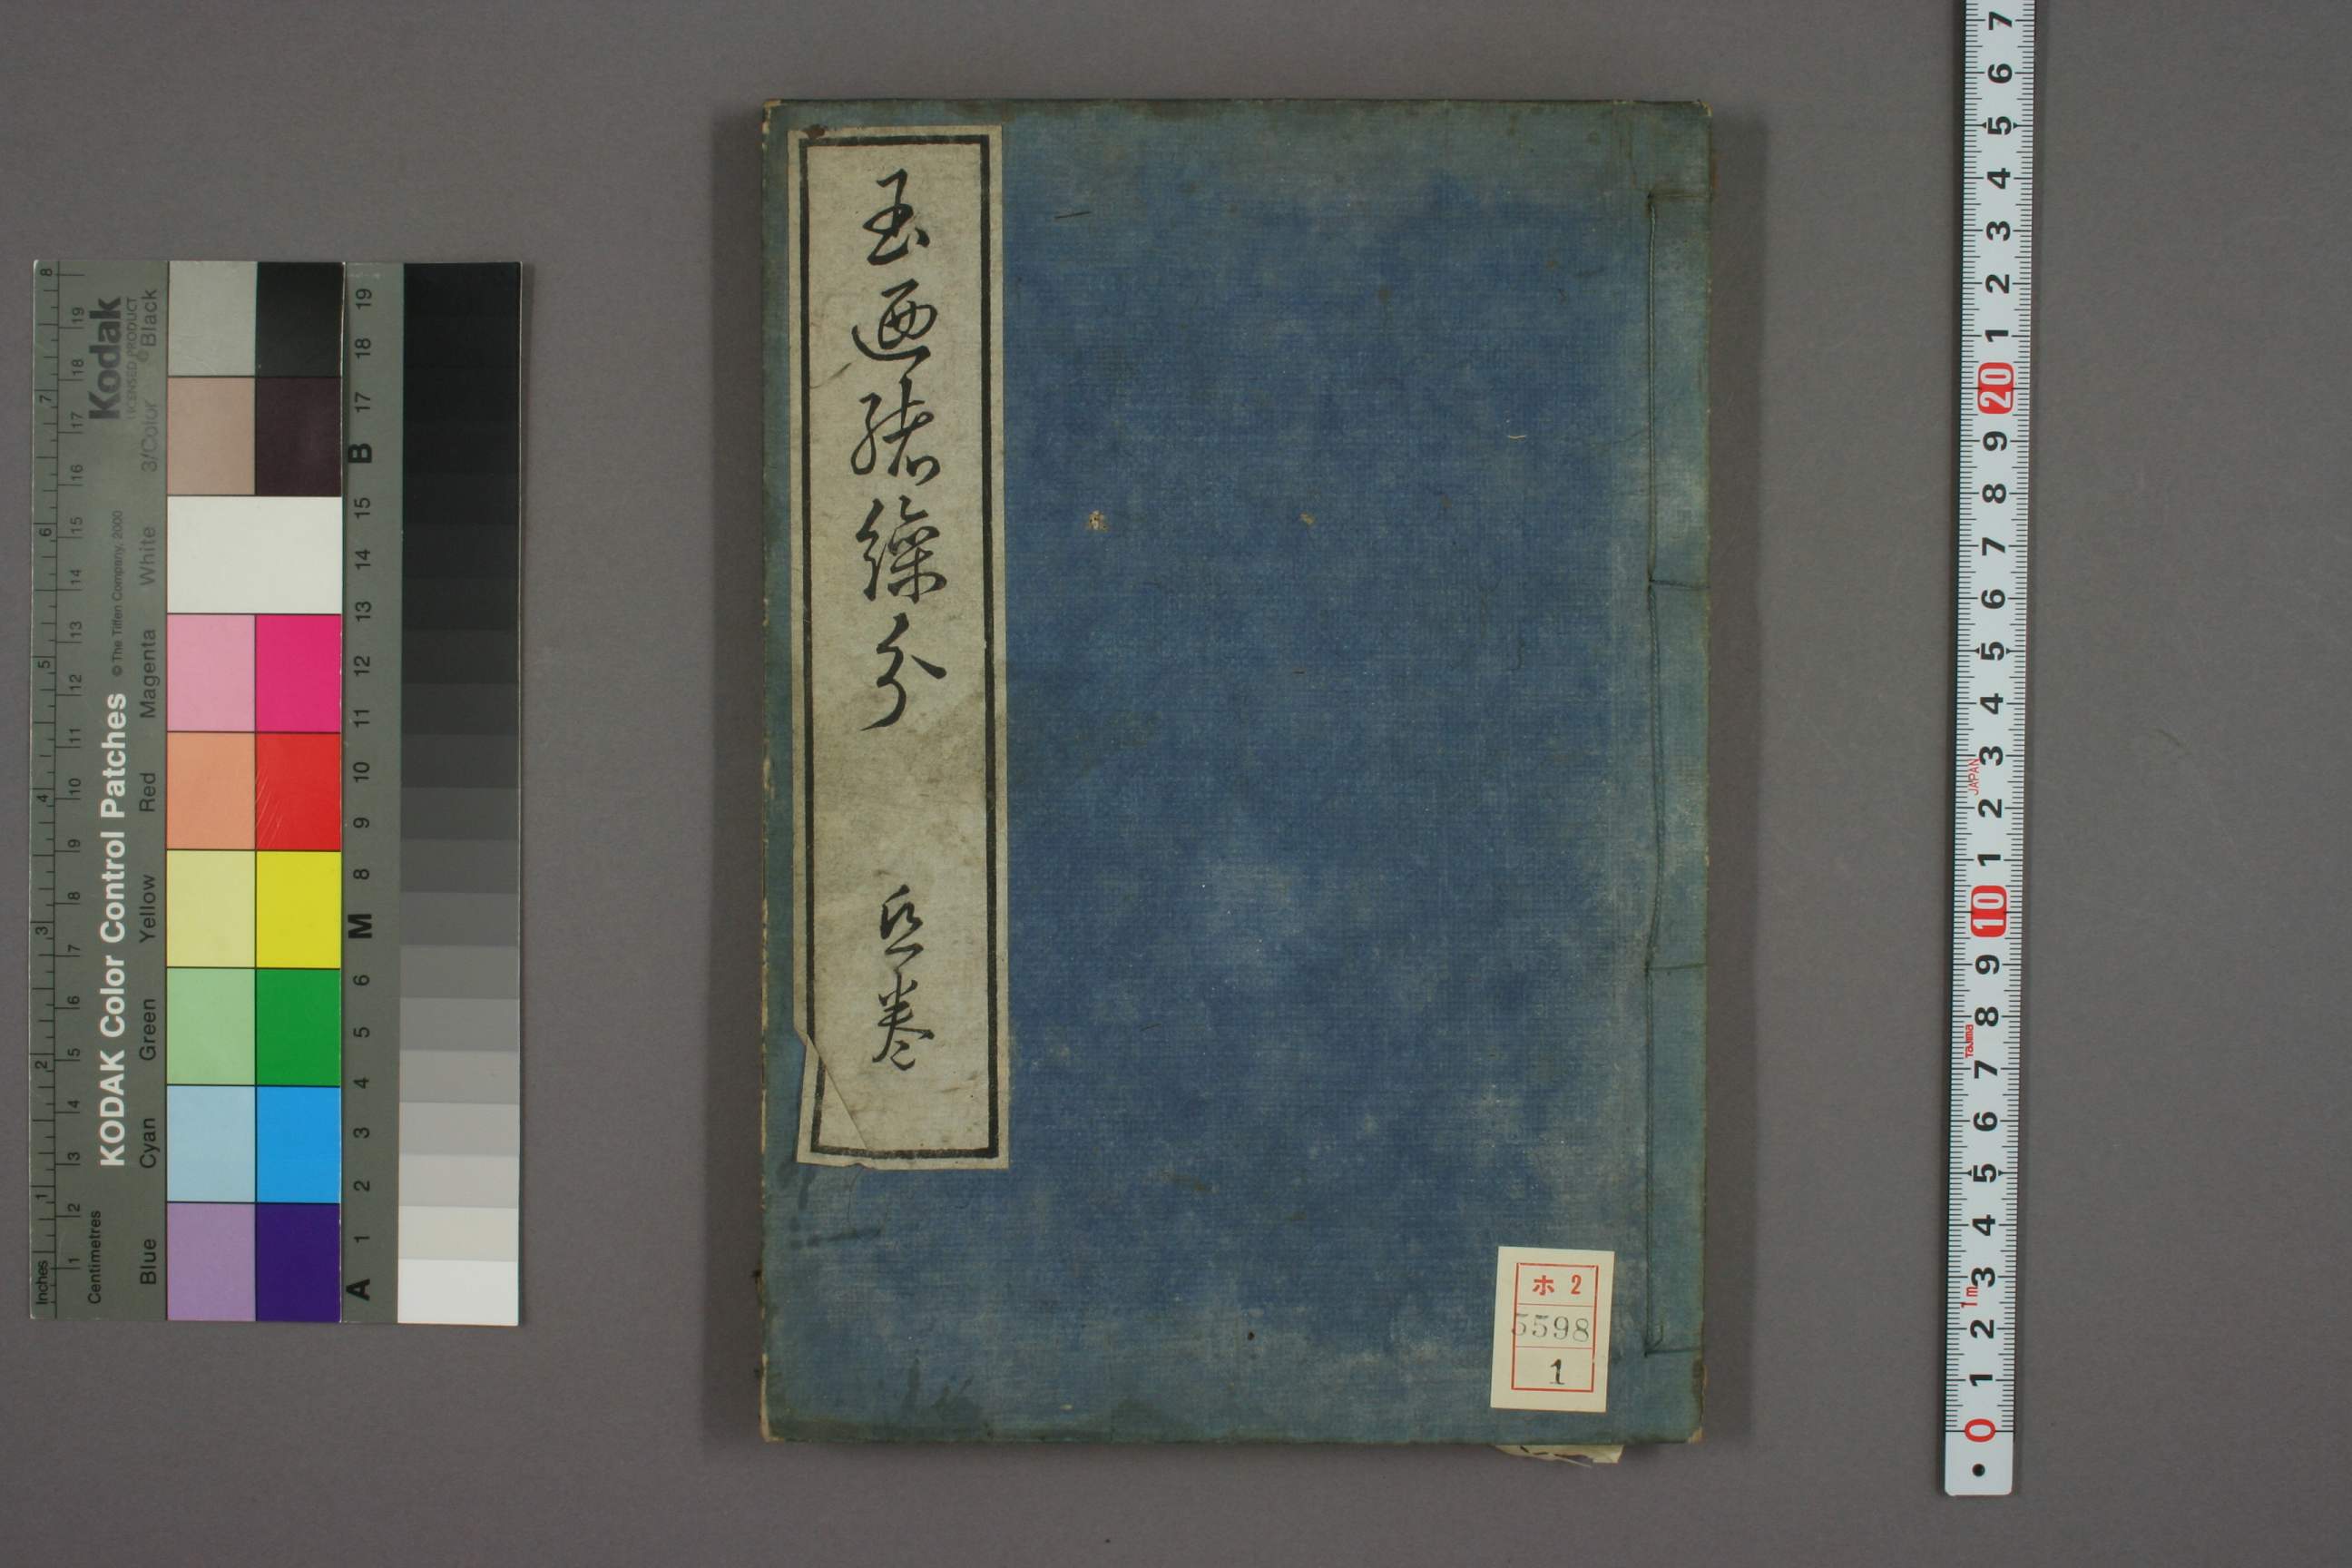 玉迺緒繰分
巻
ホ 2
5598
1
KODAK Color Control Patches
© The Tiffen Company, 2000
Kodak
LICENSED PRODUCT
Inches 1 2 3 4 5 6 7 8
Centimetres 1 2 3 4 5 6 7 8 9 10 11 12 13 14 15 16 17 18 19
Blue Cyan Green Yellow Red Magenta White 3/Color Black
A 1 2 3 4 5 6 M 8 9 10 11 12 13 14 15 B 17 18 19
7 6 5 4 3 2 1 20 9 8 7 6 5 4 3 2 1 10 9 8 7 6 5 4 3 2 1 0
JAPAN
Tajima
1m